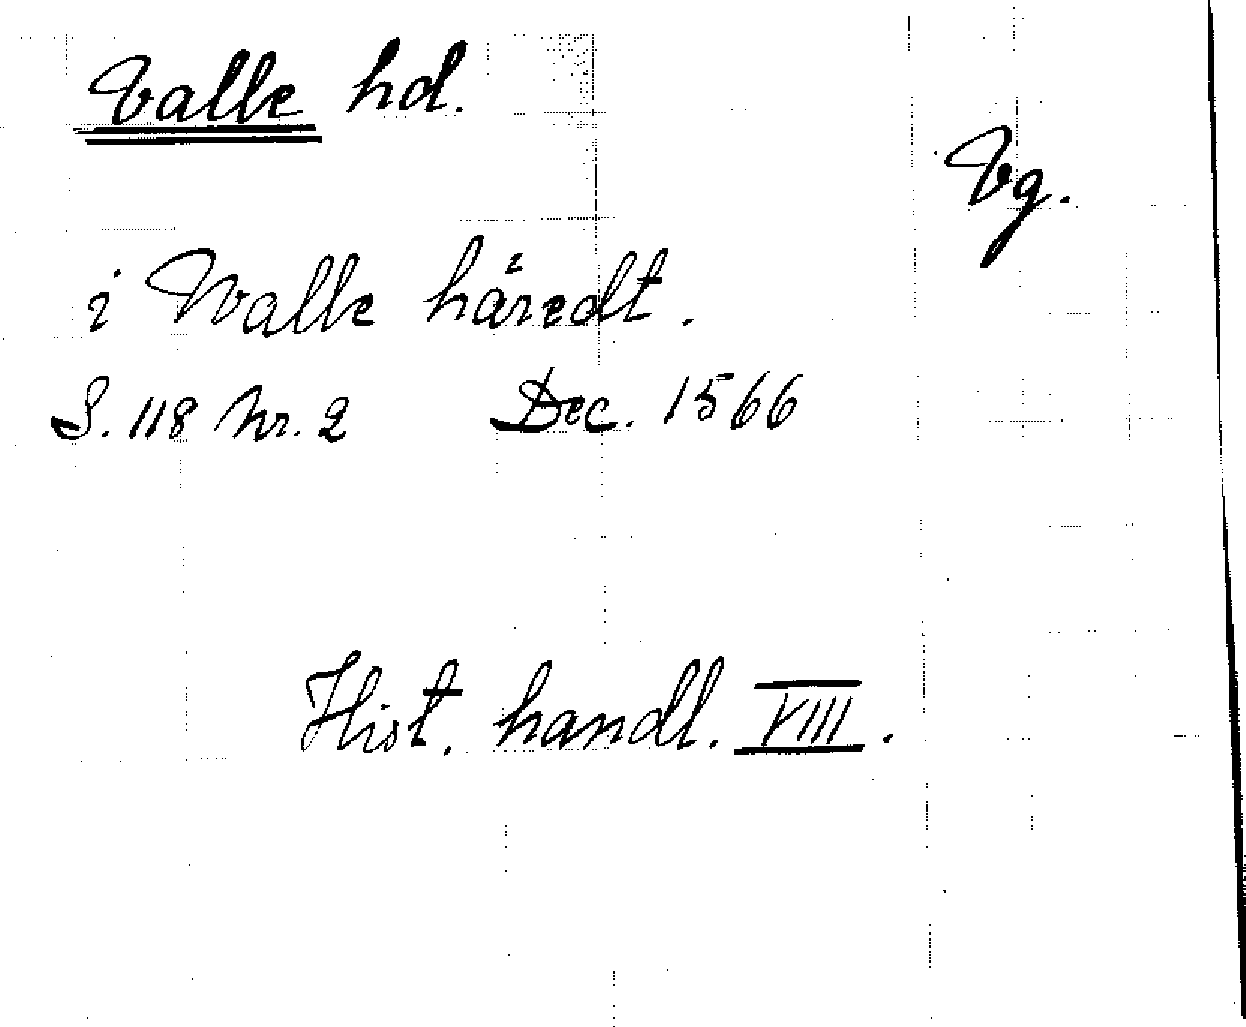 Valle hd.
Vg.
i Walle häredt.
S. 118 Nr. 2 Dec. 1566
Hist. handl. VIII.